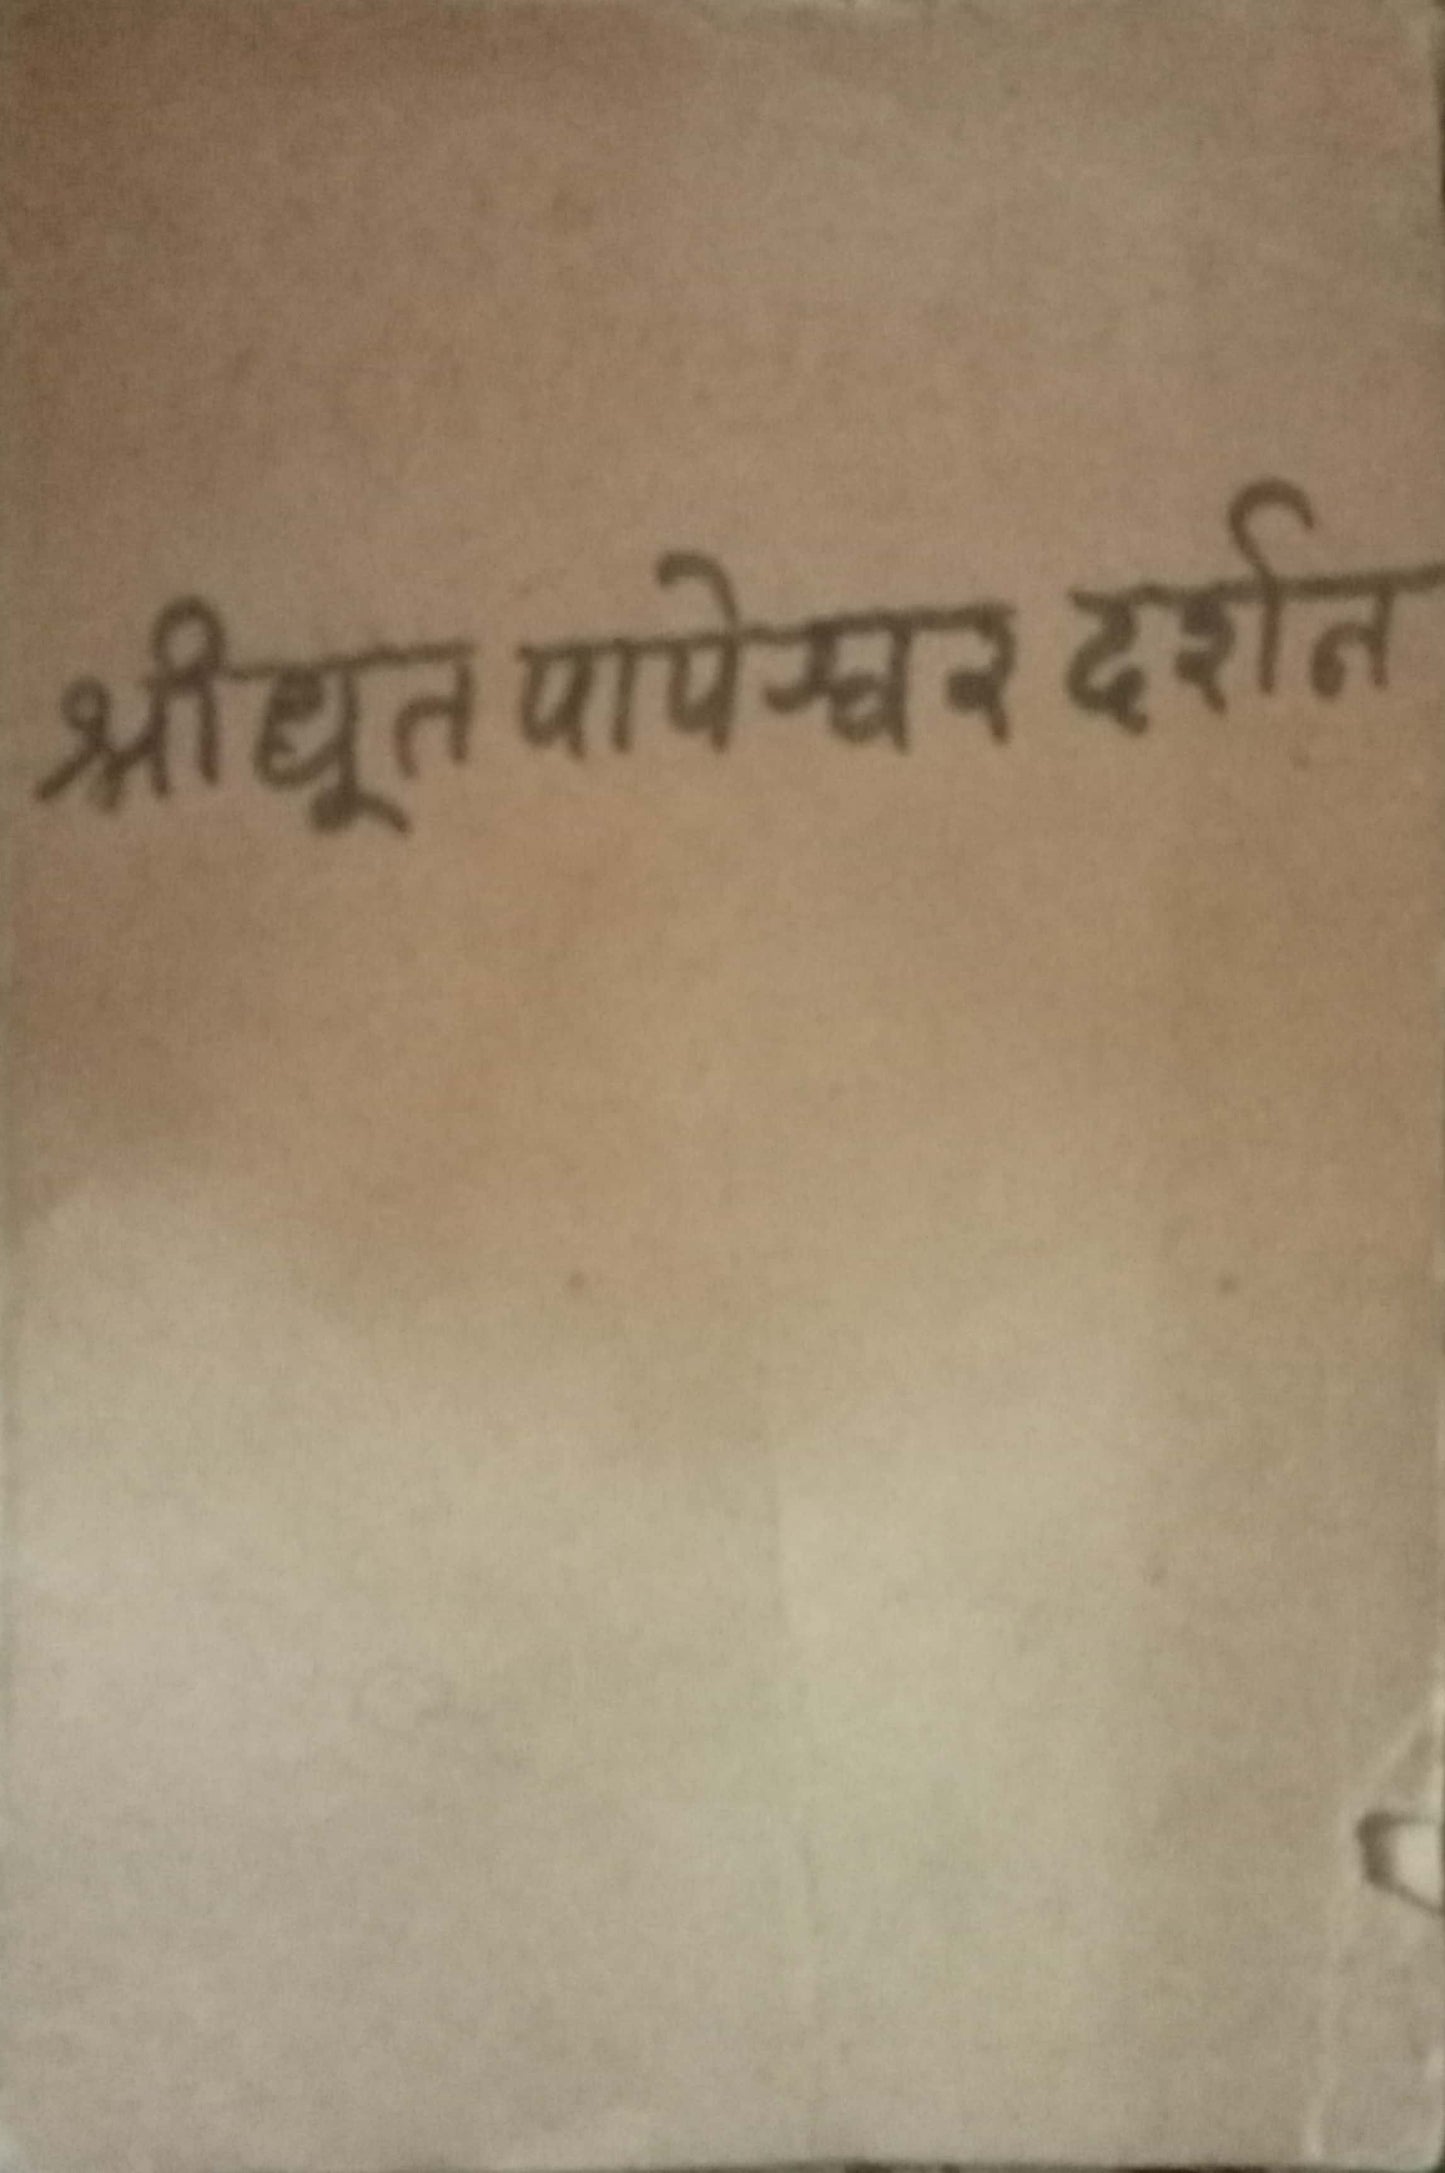 श्रीधूत पापेश्वर दर्शन